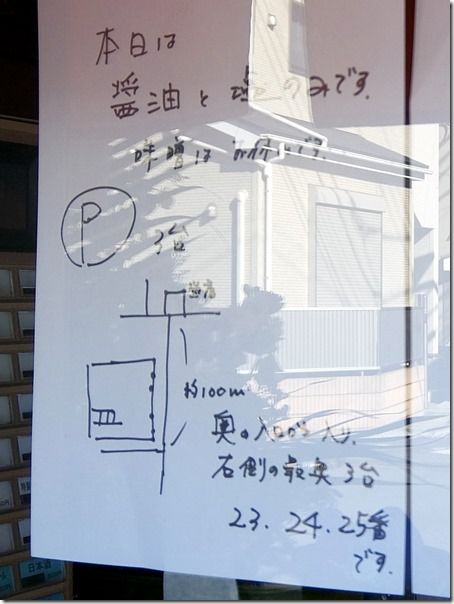 本日は
醤油と塩のみです.
味噌は お休みです.
P 3台
当店
約100m
奥の入口から入り,
右側の最奥3台
23.24.25番
です.
日本酒